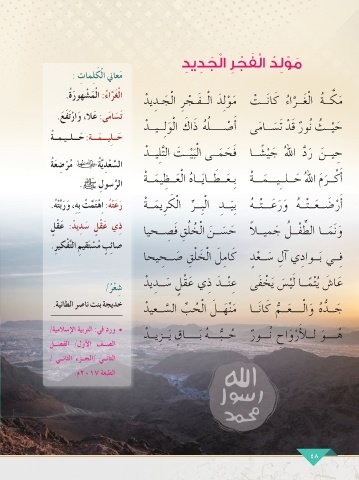 مَوْلِدُ الْفَجْرِ الْجَدِيدِ
مَكَّةُ الْغَرَّاءُ كَانَتْ مَوْلِدَ الْفَجْرِ الْجَدِيدْ
حَيْثُ نُورٌ قَدْ تَسَامَى أَصْلُهُ ذَاكَ الْوَلِيدْ
حِينَ رَدَّ اللهُ جَيْشًا فَحَمَى الْبَيْتَ التَّلِيدْ
أَكْرَمَ اللهُ حَلِيمَةْ بِعَطَايَاهُ الْعَظِيمَةْ
أَرْضَعَتْهُ وَرَعَتْهُ بِيَدِ الْبِرِّ الْكَرِيمَةْ
وَنَمَا الطِّفْلُ جَمِيلًا حَسَنَ الْخُلُقِ فَصِيحا
فِي بَوَادِي آلِ سَعْدٍ كَامِلَ الْخَلْقِ صَحِيحا
عَاشَ يُتْمًا لَيْسَ يَخْفَى عِنْدَ ذِي عَقْلٍ سَدِيدْ
جَدُّهُ وَالْعَمُّ كَانَا مَنْهَلَ الْحُبِّ السَّعِيدْ
هُوَ لِلْأَرْوَاحِ نُورٌ حُبُّهُ بَاقٍ يَزِيدْ
مَعَاني الْكَلِماتِ :
الْغَرَّاءُ: الْمَشْهُورَةُ.
تَسَامَى: عَلا، وَارْتَفَعَ.
حَلِيمَة: حَلِيمَةُ
السَّعْدِيَّةُ مُرْضِعَةُ
الرَّسُولِ ﷺ.
رَعَتْهُ: اهْتَمَّتْ بِهِ، وَرَبَّتْهُ.
ذِي عَقْلٍ سَدِيدٍ: عَقْلٍ
صائِبٍ مُسْتَقِيمِ التَّفْكِيرِ.
شِعْرُ/
خديجة بنت ناصر الطائية.
• ورد في: التربية الإسلامية/
الصف الأول/ الفصل
الثاني /الجزء الثاني /
الطبعة ٢٠١٧م
الله
رسول
محمد
٤٨